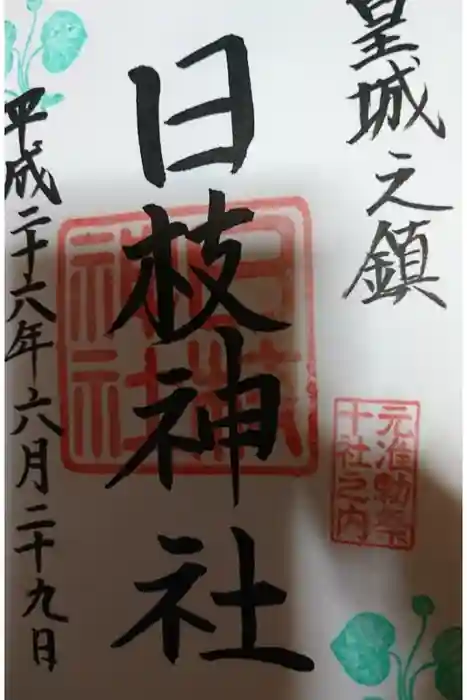 皇城之鎮
元准勅祭
十社之内
日枝神社
日枝
神社
平成二十六年六月二十九日